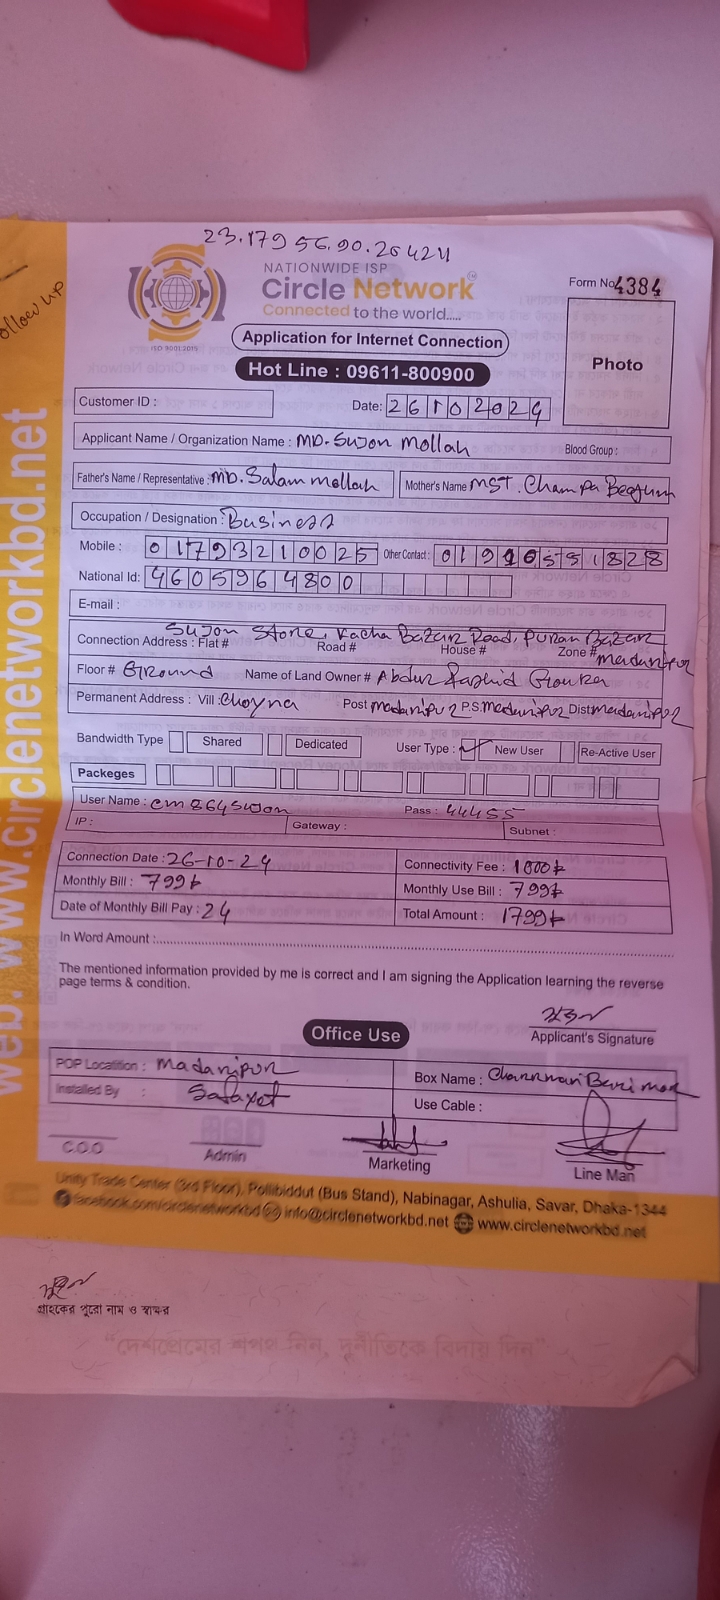 23.179 56.90.20424
NATIONWIDE ISP
Circle Network
Connected to the world.....
ISO 9001:2015
Form No 4384
Follow up
Application for Internet Connection
Hot Line : 09611-800900
Photo
Customer ID :
Date: 26102024
Applicant Name / Organization Name : MD. Sujon Mollah
Blood Group :
Father's Name / Representative : MD. Salam mollah
Mother's Name MST. Champa Begum
Occupation / Designation : Business
Mobile : 01793210025
Other Contact :
National Id: 4605964800
E-mail :
Sujon Store, Kacha Bazar Road, Puran Bazar
Connection Address : Flat # Road # House # Zone # madaripur
Floor # Ground Name of Land Owner # Abdur Rashid
Permanent Address : Vill : Choyna Post madaripur P.S. madaripur Dist madaripur
Bandwidth Type Shared Dedicated User Type : ✓ New User Re-Active User
Packeges
User Name : cm864sujon Pass : 44455
IP : Gateway : Subnet :
Connection Date : 26-10-24 Connectivity Fee : 1000৳
Monthly Bill : 799৳ Monthly Use Bill : 799৳
Date of Monthly Bill Pay : 24 Total Amount : 1799৳
In Word Amount :
The mentioned information provided by me is correct and I am signing the Application learning the reverse
page terms & condition.
সুজন
Applicant's Signature
Office Use
POP Locatition : Madaripur
Box Name :
Installed By :
Use Cable :
C.O.O Admin Marketing Line Man
Unity Trade Center (3rd Floor), Pollibiddut (Bus Stand), Nabinagar, Ashulia, Savar, Dhaka-1344
facebook.com/circlenetworkbd info@circlenetworkbd.net www.circlenetworkbd.net
web: www.circlenetworkbd.net
সুজন
গ্রাহকের পুরো নাম ও স্বাক্ষর
"দেশপ্রেমের শপথ নিন, দুর্নীতিকে বিদায় দিন"